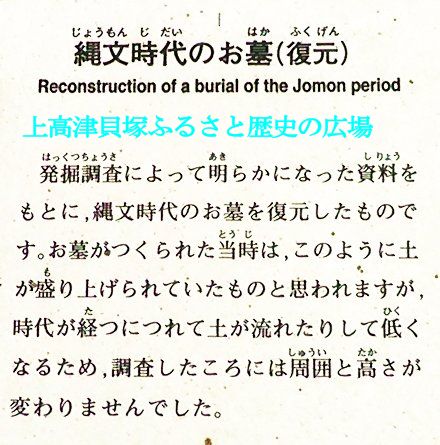 じょうもん じ だい はか ふくげん
縄文時代のお墓(復元)
Reconstruction of a burial of the Jomon period
上高津貝塚ふるさと歴史の広場
はっくつちょうさ あき しりょう
発掘調査によって明らかになった資料を
もとに,縄文時代のお墓を復元したもので
とう じ
す。お墓がつくられた当時は,このように土
も
が盛り上げられていたものと思われますが,
た ひく
時代が経つにつれて土が流れたりして低く
しゅうい たか
なるため,調査したころには周囲と高さが
変わりませんでした。